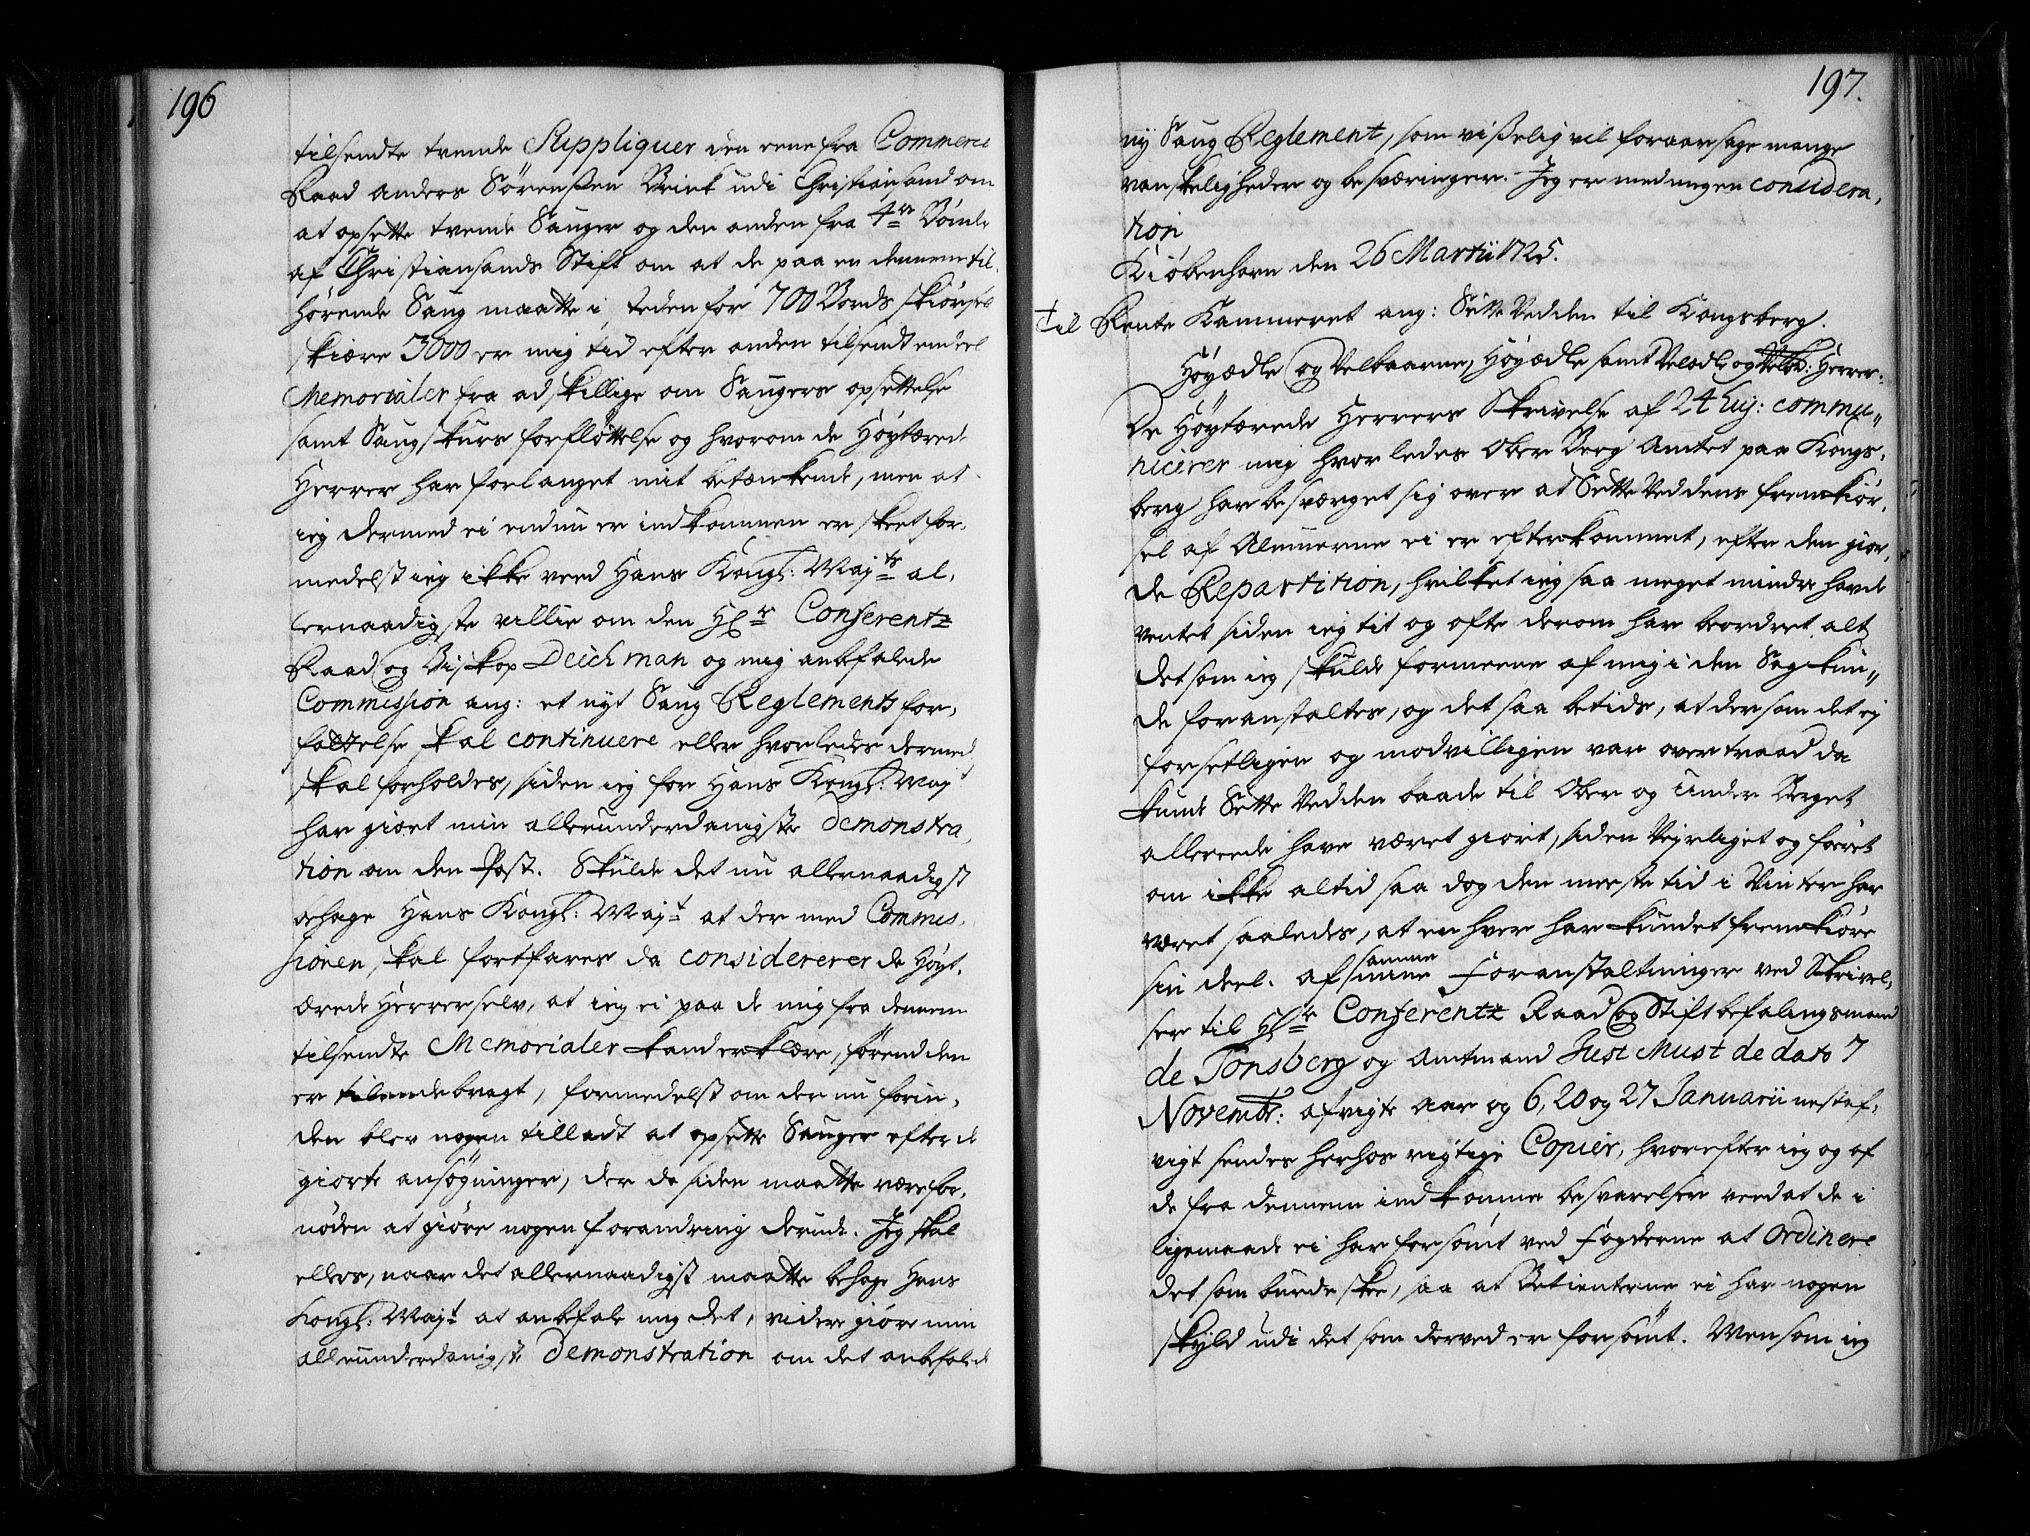 196
tilsendte tvende Suppliquer den eene fra Commerce
Raad Anders Sørenssen Brink udi Christiansand om
at opsette tvende Sauger og den anden fra 4re Bønder
af Christiansands Stift om at de paa en dennem til,
hørende Saug maatte i steden for 700 Bords skiørsel
skiære 3000 er mig tid efter anden tilsendt endeel
Memorialer fra adskillige om Saugers opsettelse
samt Saugskurs forfløttelse og hvorom de Høytærede
Herrer har forlanget mit betænkende, men at
ieg dermed ei endnu er indkommen er skeet for,
medelst ieg ikke veed Hans Kongl: Majts al,
lernaadigste villie om den Hr Conferentz
Raad og Biskop Deichman og mig anbefalede
Commission ang: et nyt Saug Reglements for,
fattelse skal continuere eller hvorledes dermed
skal forholdes, siden ieg for Hans Kongl: Mayt
har giort min allerunderdanigste demonstra,
tion om den Post. Skulde det nu allernaadigst
behage Hans Kongl: Majt at der med Commis,
sionen skal fortfares da considererer de Høyt,
ærede Herrer selv, at ieg ei paa de mig fra dennem
tilsendte Memorialer kand erklære, førend den
er tilendebragt, formedelst om der nu forin,
den blev nogen tilladt at opsette Sauger efter de
giorte ansøgninger, der da siden maatte være for,
nøden at giøre nogen forandring derudi. Jeg skal
ellers, naar det allernaadigst maatte behage Hans
Kongl: Majt at anbefale mig det, videre giøre min
allerunderdanigste demonstration om det anbefalede
197.
ny Saug Reglement, som visselig vil foraarsage mange
vanskeligheder og besværinger. Jeg er med megen considera,
tion
Kiøbenhavn den 26 Martii 1725.
Til Rente Kammeret ang: Sette Vedden til Kongsberg.
Høyædle og Velbaarne, Høyædle samt Velædle og Velb: Herrer.
De Høytærede Herrers Skrivelse af 24 huj: commu,,
nicerer mig hvorledes Ober Berg Amtet paa Kongs,
berg har besværget sig over at Sette Veddens fremkiør,
sel af Almuerne ei er efterkommet, efter den gior,
de Repartition, hvilket ieg saa meget mindre havde
ventet siden ieg tit og ofte derom har beordret alt
det som ieg skulde formeene af mig i den Sag kun,,
de foranstaltes, og det saa betids, at dersom det ej
forsetligen og modvilligen var overtraad da
kunde Sette Vedden baade til Ober og Under Berget
allereede have været giort, siden Vejrliget og føret
om ikke altid saa dog den meeste tid i Vinter har
været saaledes, at en hver har kundet fremkiøre
sin deel. af mine samme Foranstaltninger ved Skrivel,
ser til Hr Conferentz Raad og Stiftbefalingsmand
de Tonsberg og Amtmand Just Must de dato 7
Novembr: afvigte Aar og 6, 20 og 27 Januarii nestaf,
vigt sendes herhos rigtige Copier, hvorefter ieg og af
de fra dennem indkomne besvarelser veed at de i
ligemaade ei har forsømt ved Fogderne at ordinere
det som burde skee, saa at Betienterne ei har nogen
skyld udi det som derved er forsømt. Men som ieg